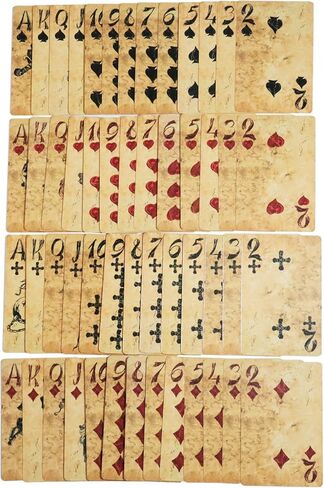 A K Q J 10 9 8 7 6 5 4 3 2
2
A K Q J 10 9 8 7 6 5 4 3 2
2
A K Q J 10 9 8 7 6 5 4 3 2
2
A K Q J 10 9 8 7 6 5 4 3 2
2